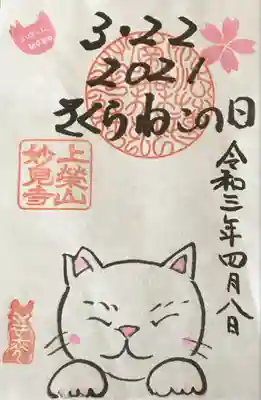 3・22
2021
さくらねこの日
令和三年四月八日
上榮山
妙見寺